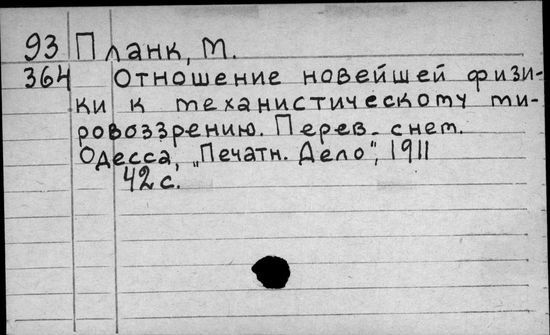 93 Планк, М.
364 Отношение новейшей физи-
ки к механистическому ми-
ровоззрению. Перев. с нем.
Одесса, „Печатн. Дело", 1911
42 с.